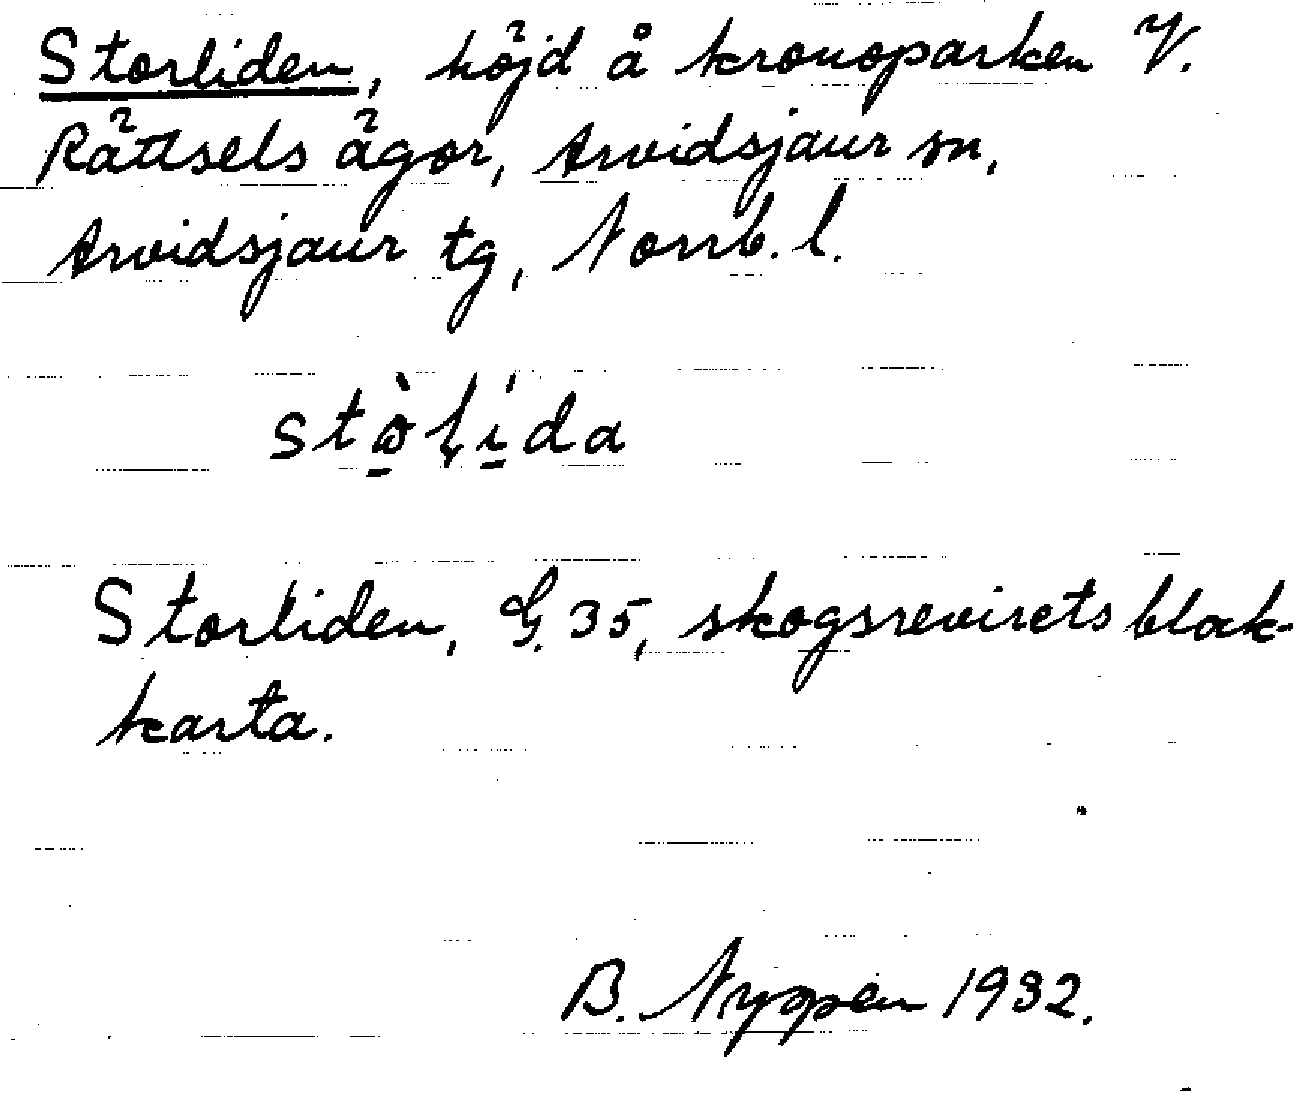 Storliden, höjd å kronoparken V.
Rättsels ägor, Arvidsjaur sn,
Arvidsjaur tg, Norrb. l.
Storliden, G. 35, skogsrevirets block-
karta.
B. Nyppen 1932.